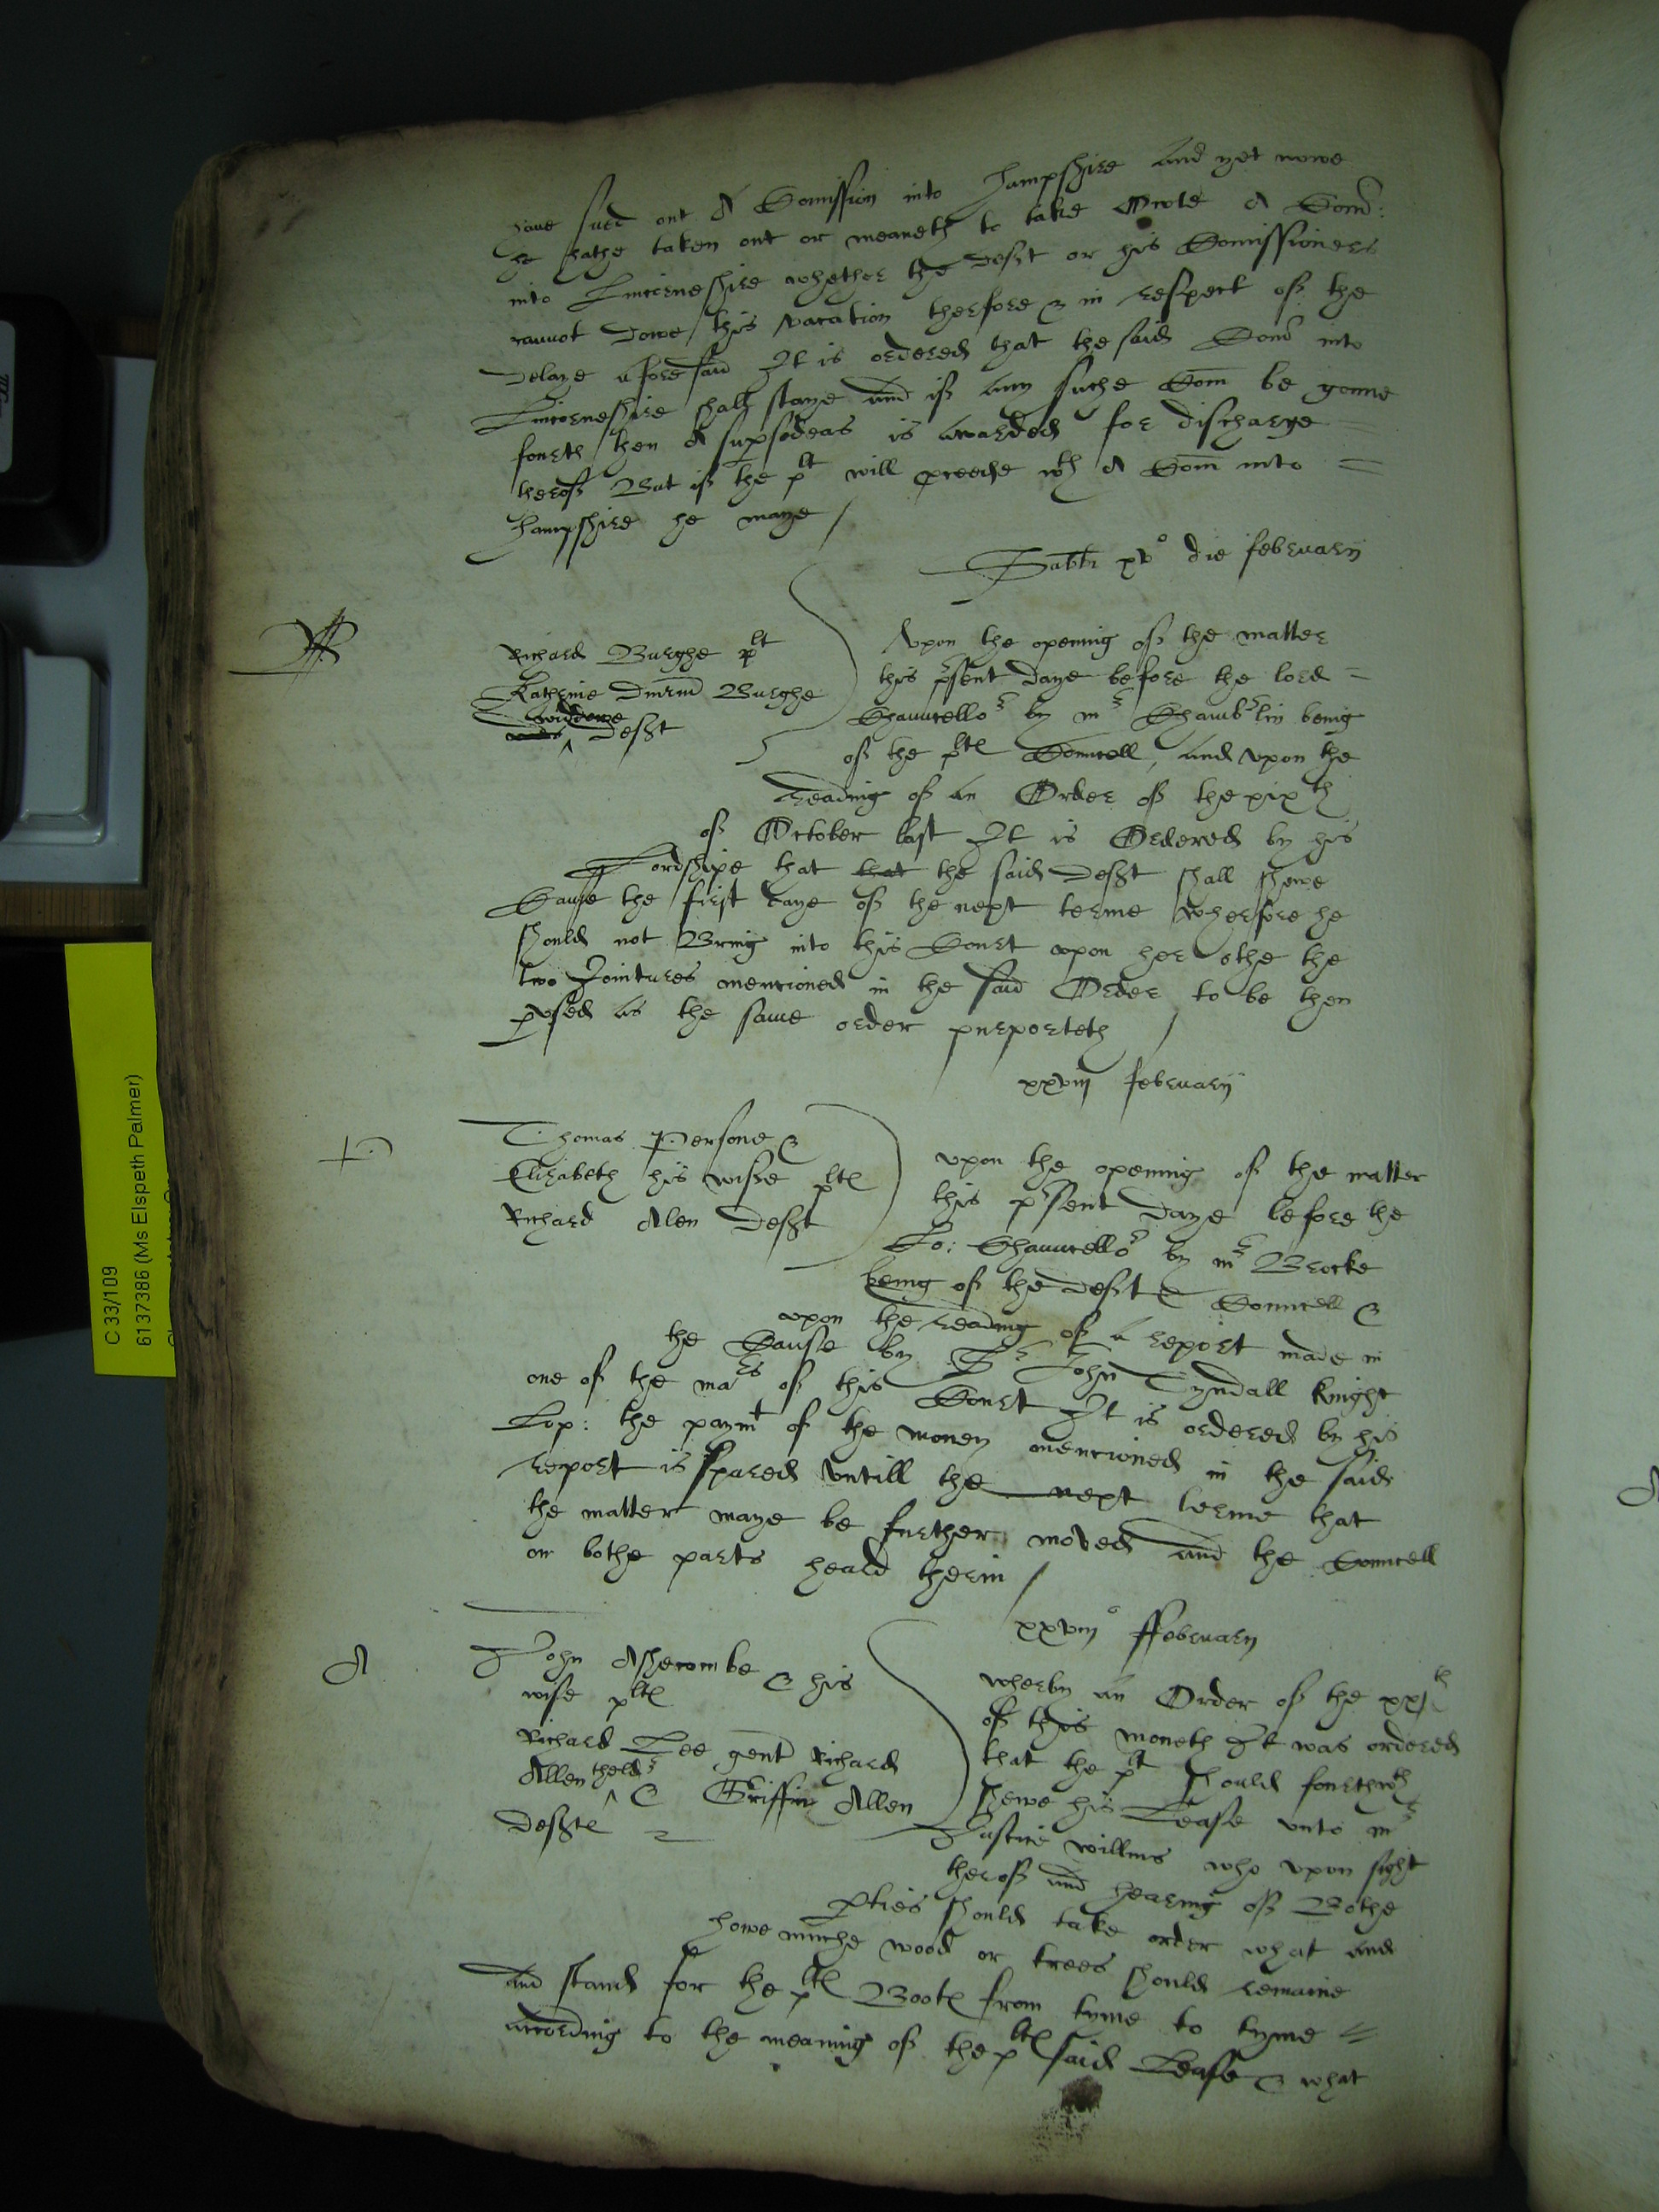 haue sued out A Comission into Hampshire And yet nowe
he hathe taken out or meaneth to take Owte A Com:
into Lincorneshire whether the deft or his Comissioners
cannot Dowe this vacation therfore & in respect of the
delaye aforesaid It is ordered that the said Com into
Lincorneshire shall staye and if Any suche Com be gonne
fourth then A supsedeas is Awarded for discharge
therof But if the plt will proceede wth A Com into
Hampshire he maye /
Sabti xvº die february
B
Richard Burghe plt
Katherine Burghe
widdowe
deft
Vpon the opening of the matter
this psent daye before the lord
Chauncellor by mr Chamblin being
of the pltes Councell, and vpon the
Reading of an Order of the xixth
of October last It is Ordered by his
Lordshipe that that the said deft shall shewe
Cause the first daye of the next terme wherfore he
should not Bring into this Court vpon her othe the
two Jointures mencioned in the said Order to be then
pvsed as the same order purporteth /
xxviij february
P
Thomas Persone &
Elizabeth his wiffe pltes
Richard Alen Deft
vpon the openning of the matter
this psent daye before the
Lo: Chauncellor by mr Brocke
being of the deftes Councell &
vpon the reading of a report made in
the Cause by Sr John Tyndall knight
one of the mars of this Court It is ordered by his
Lop: the paymt of the money mencioned in the said
report is spared vntill the next terme that
the matter maye be further moved and the Councell
on bothe parts heard therin /
xxviijº ffebruary
A
John Ashecombe & his
wife pltes
Richard Lee gent Richard
Allen theldr & Griffin Allen
deftes
wherby an Order of the xxjth
of this moneth It was ordered
that the plt should fourthwth
shewe his Lease vnto mr
Justice willms who vpon sight
therof and hearing of Bothe
pties should take order what and
howe muche wood or trees should remaine
and stand for the pltes Bootes from tyme to tyme
according to the meaning of the pltes said Lease & what
C 33/109
6137386 (Ms Elspeth Palmer)